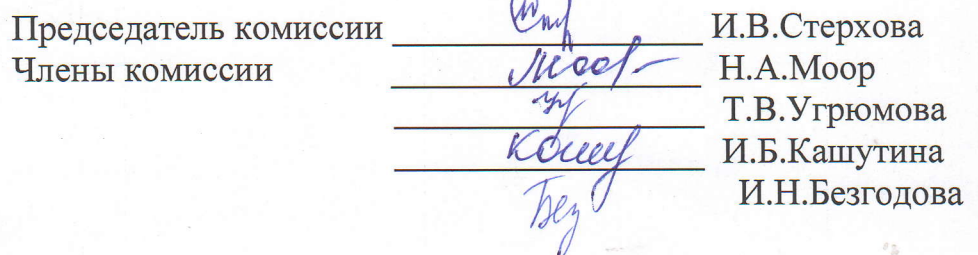 Председатель комиссии И.В.Стерхова
Члены комиссии Моор Н.А.Моор
Т.В.Угрюмова
Кашу И.Б.Кашутина
Без И.Н.Безгодова